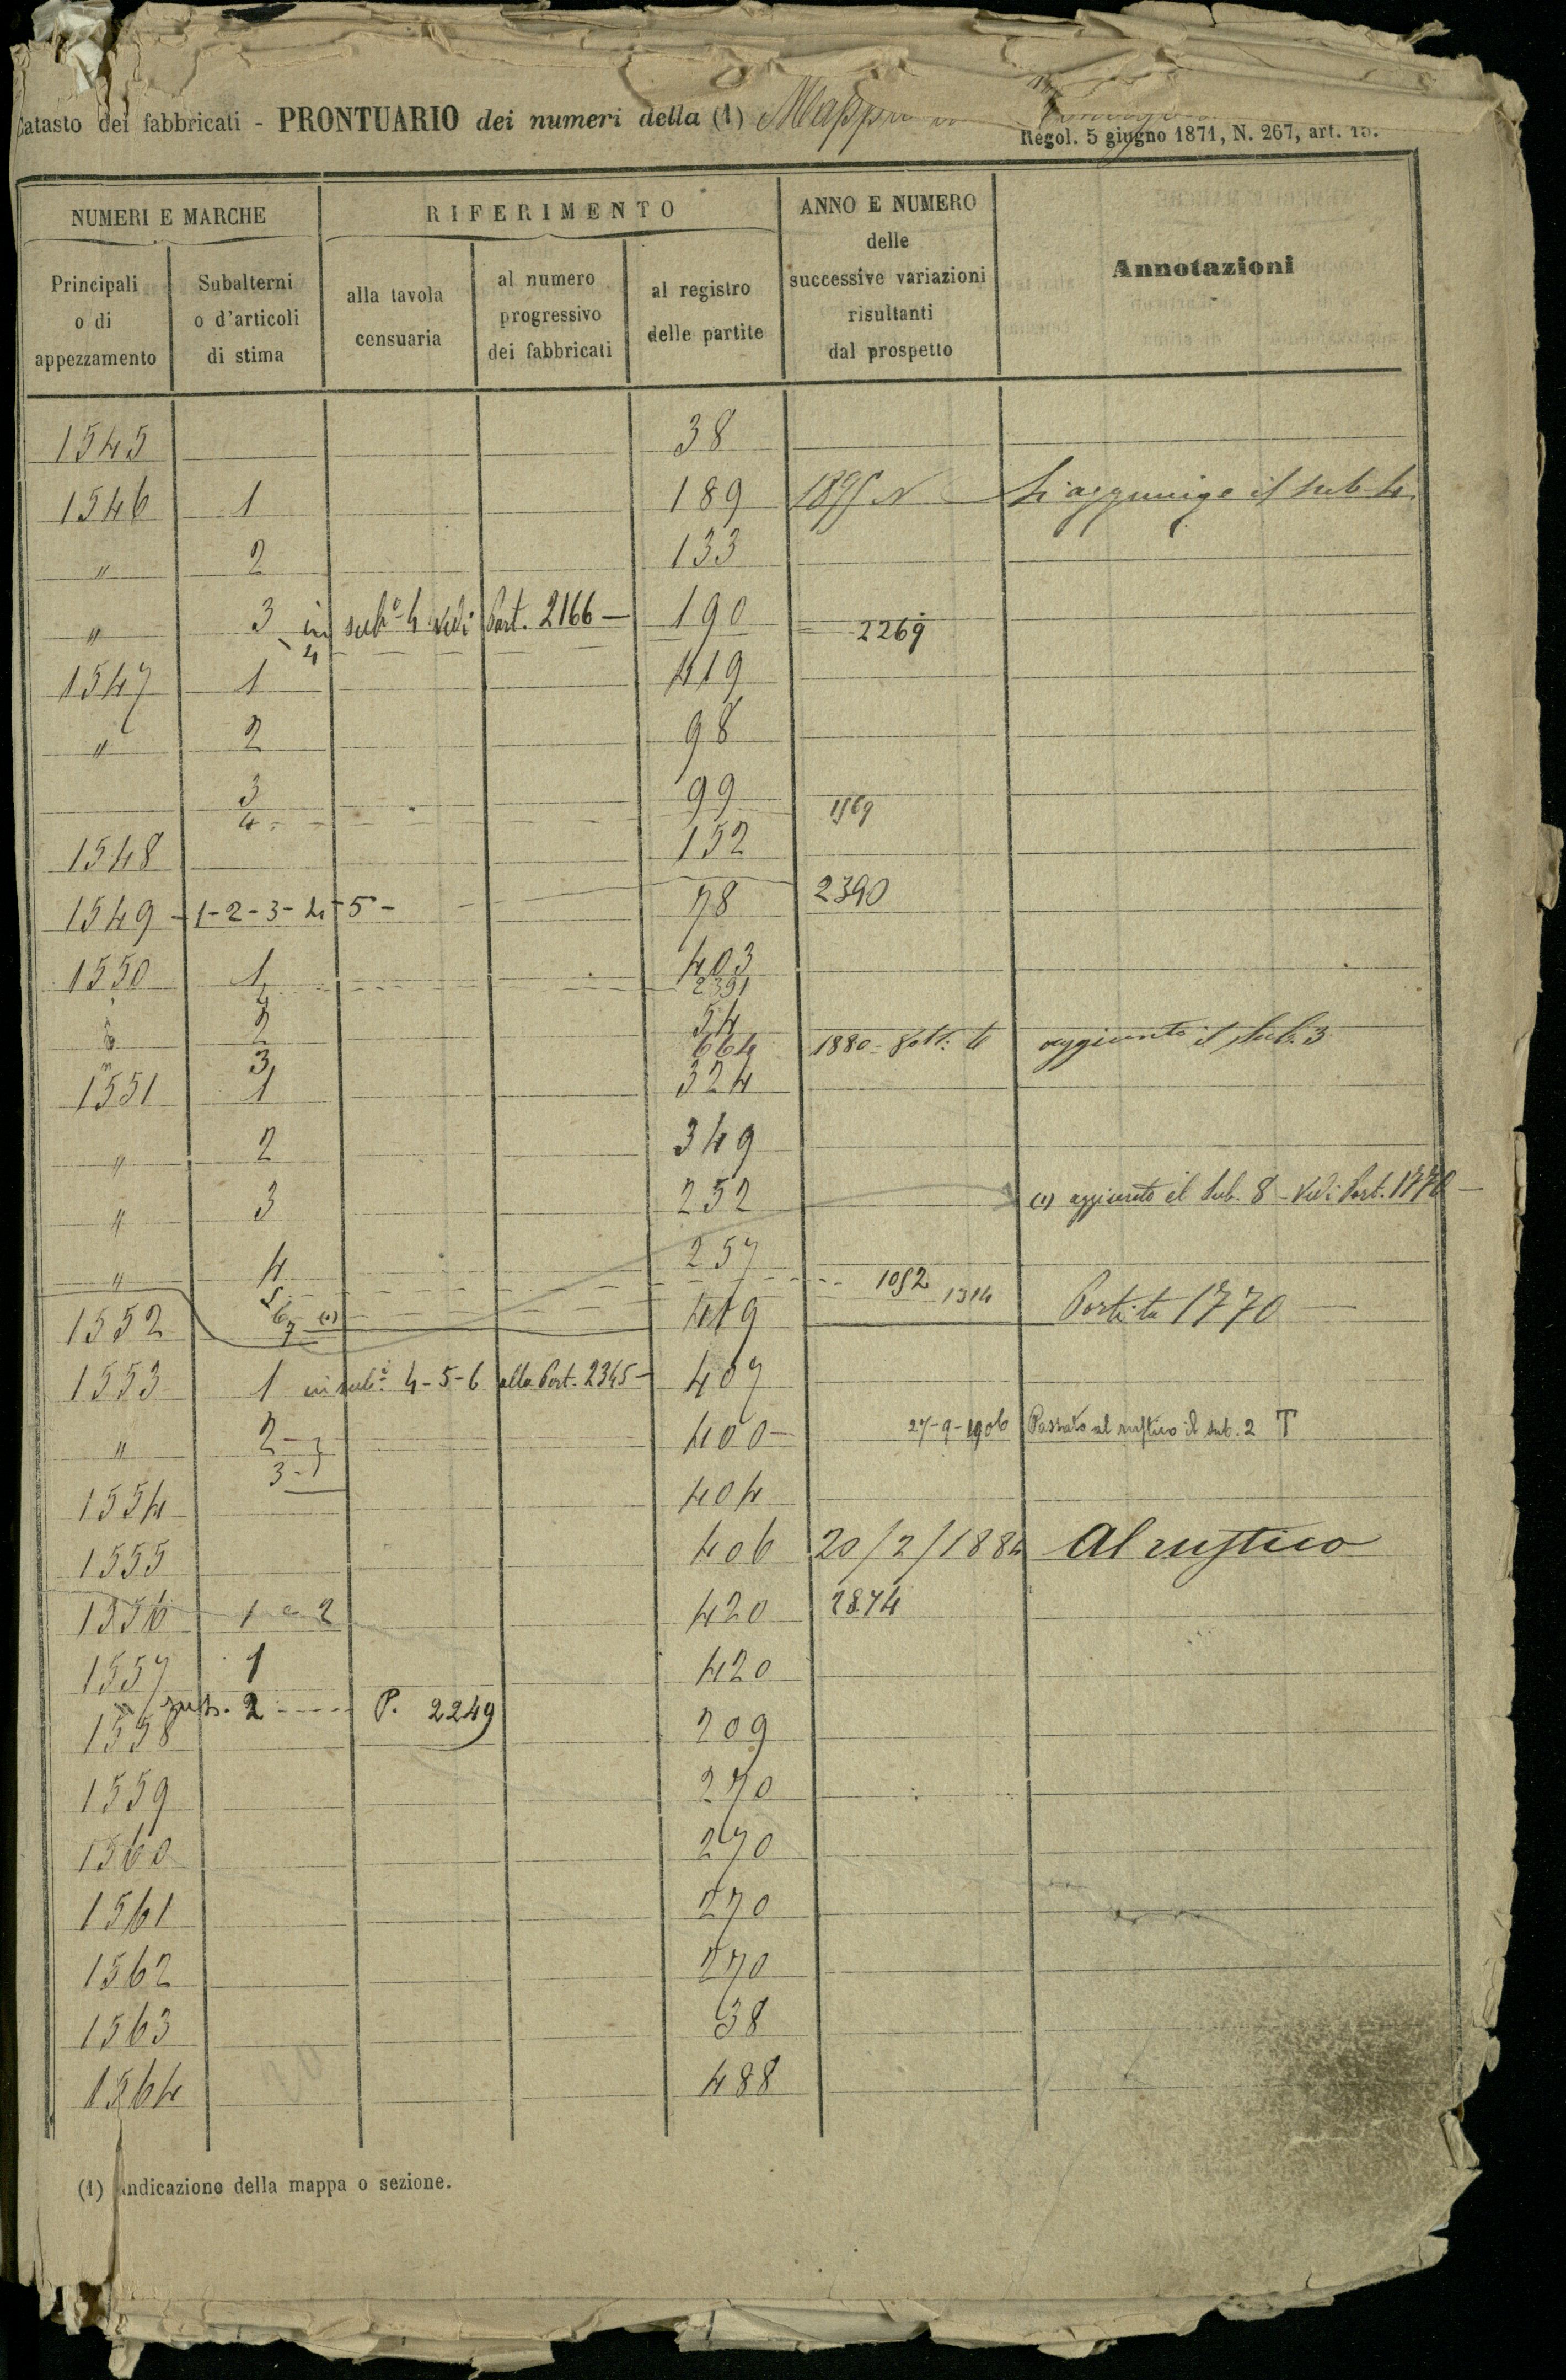 Catasto dei fabbricati - PRONTUARIO dei numeri della (1) Mappa
Regol. 5 giugno 1871, N. 267, art. 15.
NUMERI E MARCHE
RIFERIMENTO
ANNO E NUMERO
delle
successive variazioni
risultanti
dal prospetto
Annotazioni
Principali
o di
appezzamento
Subalterni
o d'articoli
di stima
alla tavola
censuaria
al numero
progressivo
dei fabbricati
al registro
delle partite
1545 38
1546 1 189 Si aggiunge il sub 4
" 2 133
" 3 in sub.e 4 Vedi Part. 2166 — 190 2269
4
1547 1 419
" 2 98
3 99
4 1569
1548 152
1549 - 1-2-3-4-5 - 78 2390
1550 1 403
2391
2 54
3 664 1880 aggiunto il sub. 3
1551 1 324
" 2 349
" 3 252 (1) aggiunto il Sub. 8 - Vedi Part. 1770 —
" 4 257
5 1052 1314
6
7 (1)
1552 419 Partita 1770 —
1553 1 in sub.i 4-5-6 alla Part. 2345 - 407
" 2 400 — 27-9-1906 Passato al rustico il sub. 2 T
3
1554 404
1555 406 20/2/1884 Al rustico
1556 1 e 2 420 2874
1557 1 420
sub. 2 ---- P. 2249
1558 209
1559 270
1560 270
1561 270
1562 270
1563 38
1564 488
(1) Indicazione della mappa o sezione.